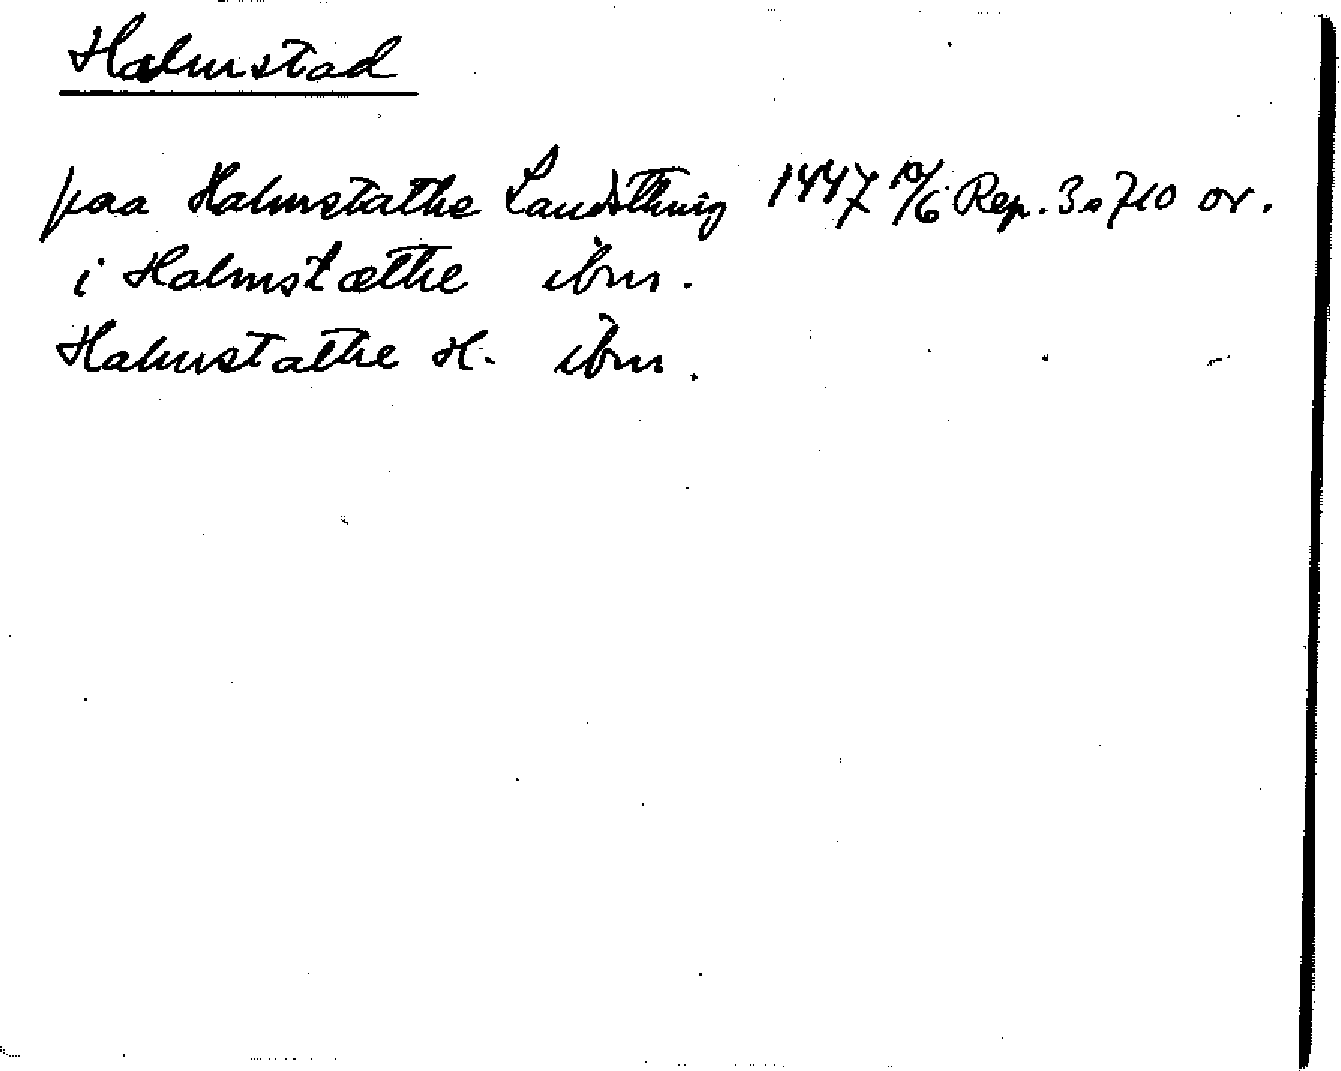 Halmstad
paa Halmstathe Landsthing 1447 10/6 Rep. 3. 710 or.
i Halmstæthe ibm.
Halmstathe H. ibm.